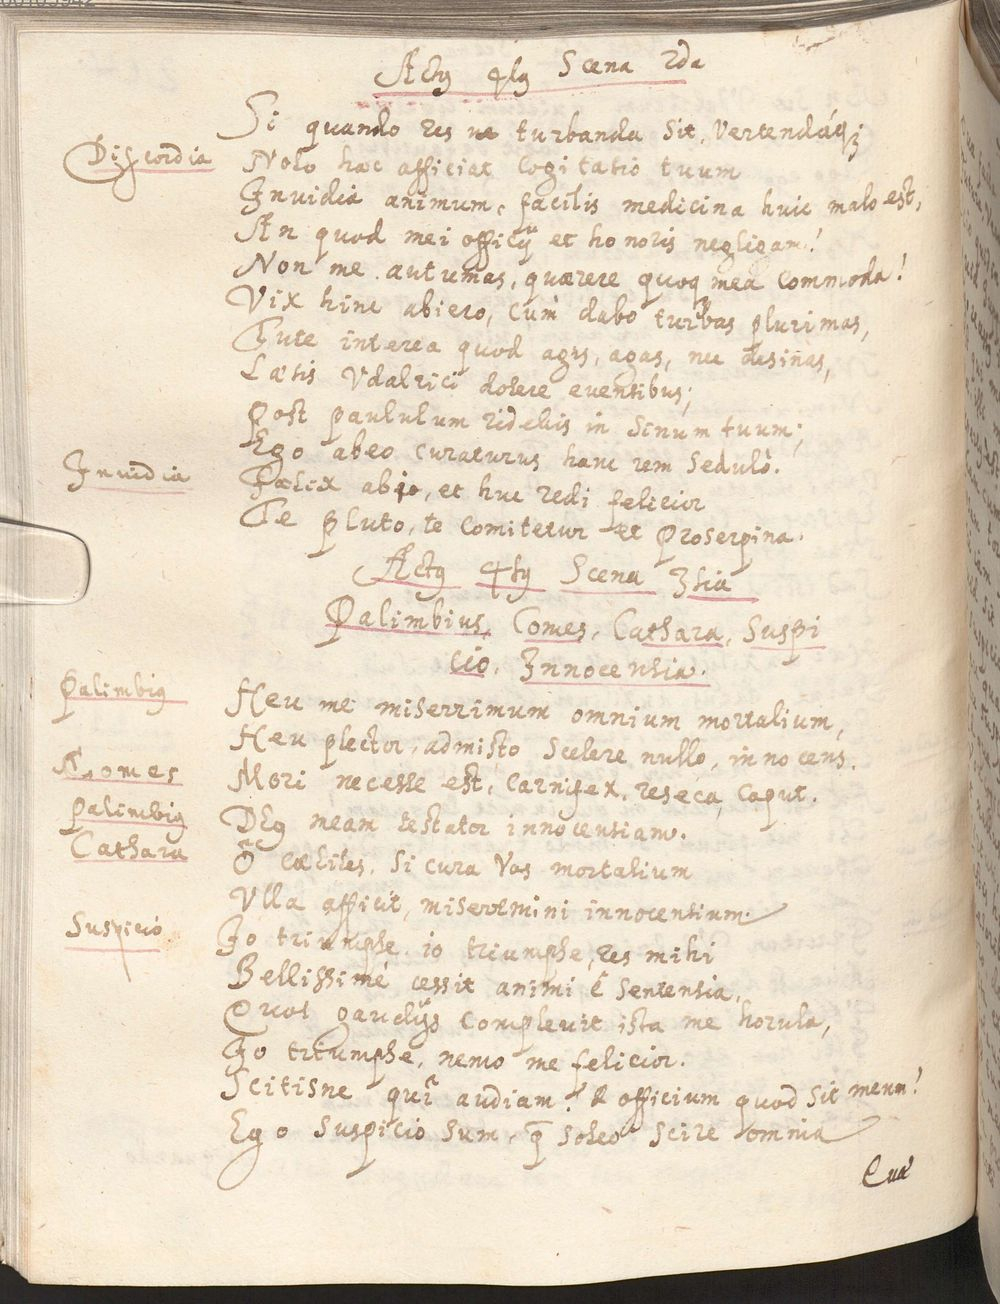 Actꝰ 4tꝰ Scena 2da
Si quando res ne turbanda sit, Vertendáq;
Discordia Nolo hæc afficiat Cogitatio tuum
Invidia animum, facilis medicina huic malo est,
An quod mei officÿ et honoris negligam!
Non me autumas, quærere quoq mea Commoda!
Vix hinc abiero, Cùm dabo turbas plurimas,
Tute interea quod agis, agas, nec desinas,
Lætis Vdalrici dolere eventibus;
Post paululum ridebis in Sinum tuum;
Ego abeo Curaturus hanc rem Sedulò.
Invidia Fælix abito, et huc redi felicior
Te Pluto, te Comitetur et Proserpina.
Actꝰ 4tꝰ Scena 3tia
Palimbius, Comes, Cathara, Suspi
cio, Innocentia.
Palimbiꝰ Heu me miserrimum omnium mortalium,
Heu plector, admisso Scelere nullo, innocens.
Comes Mori necesse est, Carnifex, reseca Caput.
Palimbiꝰ DEꝰ meam testator innocentiam.
Cathara Ô Cælites, Si cura Vos mortalium
Vlla afficit, miseremini innocentium.
Suspicio Jo triumphe, io triumphe, res mihi
Bellissimè cessit animi è Sententia,
Quot gaudÿs Complevit ista me horula,
Jo triumphe, nemo me felicior.
Scitisne quī audiam? & officium quod Sit meum!
Ego Suspicio Sum, q̄ Soleo Scire omnia
Quæ